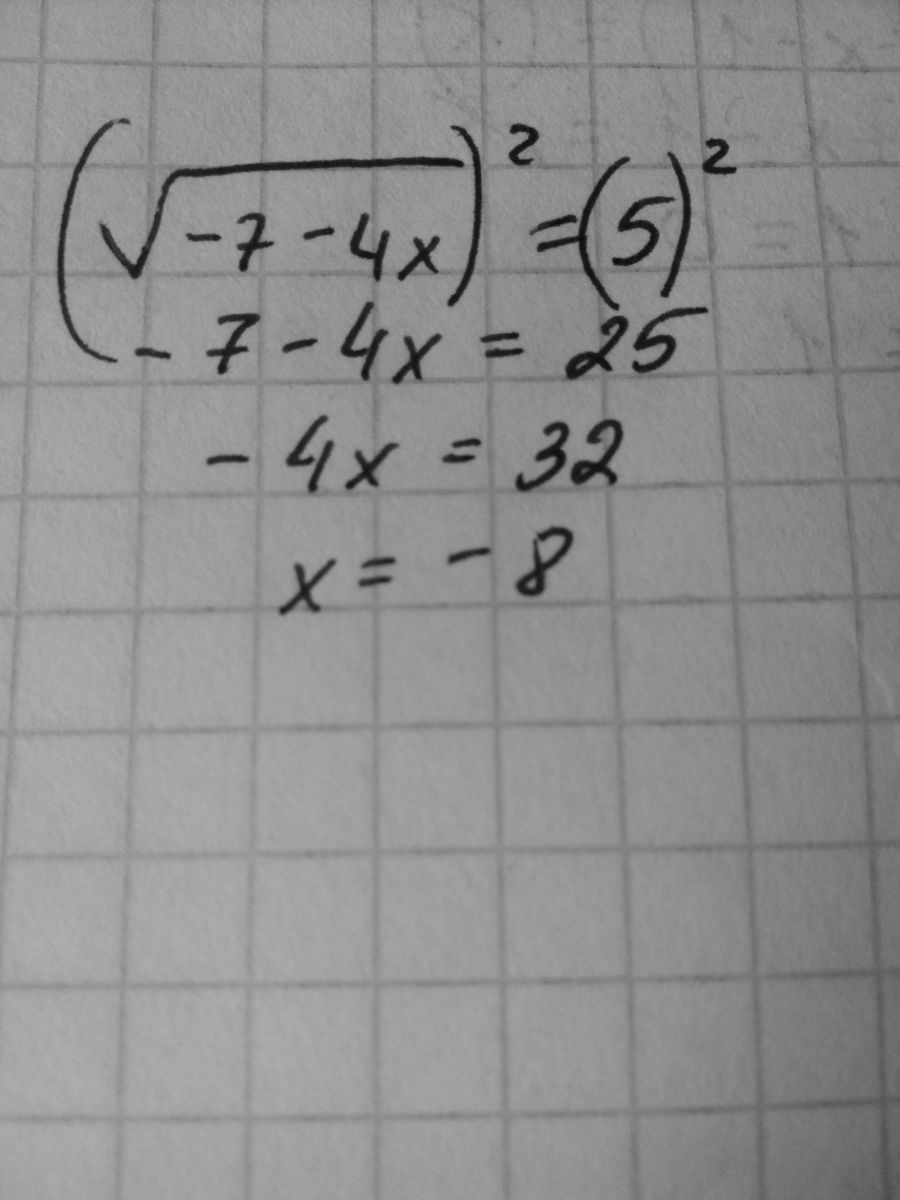 (√-7 - 4x)² = (5)²
- 7 - 4x = 25
- 4x = 32
x = - 8